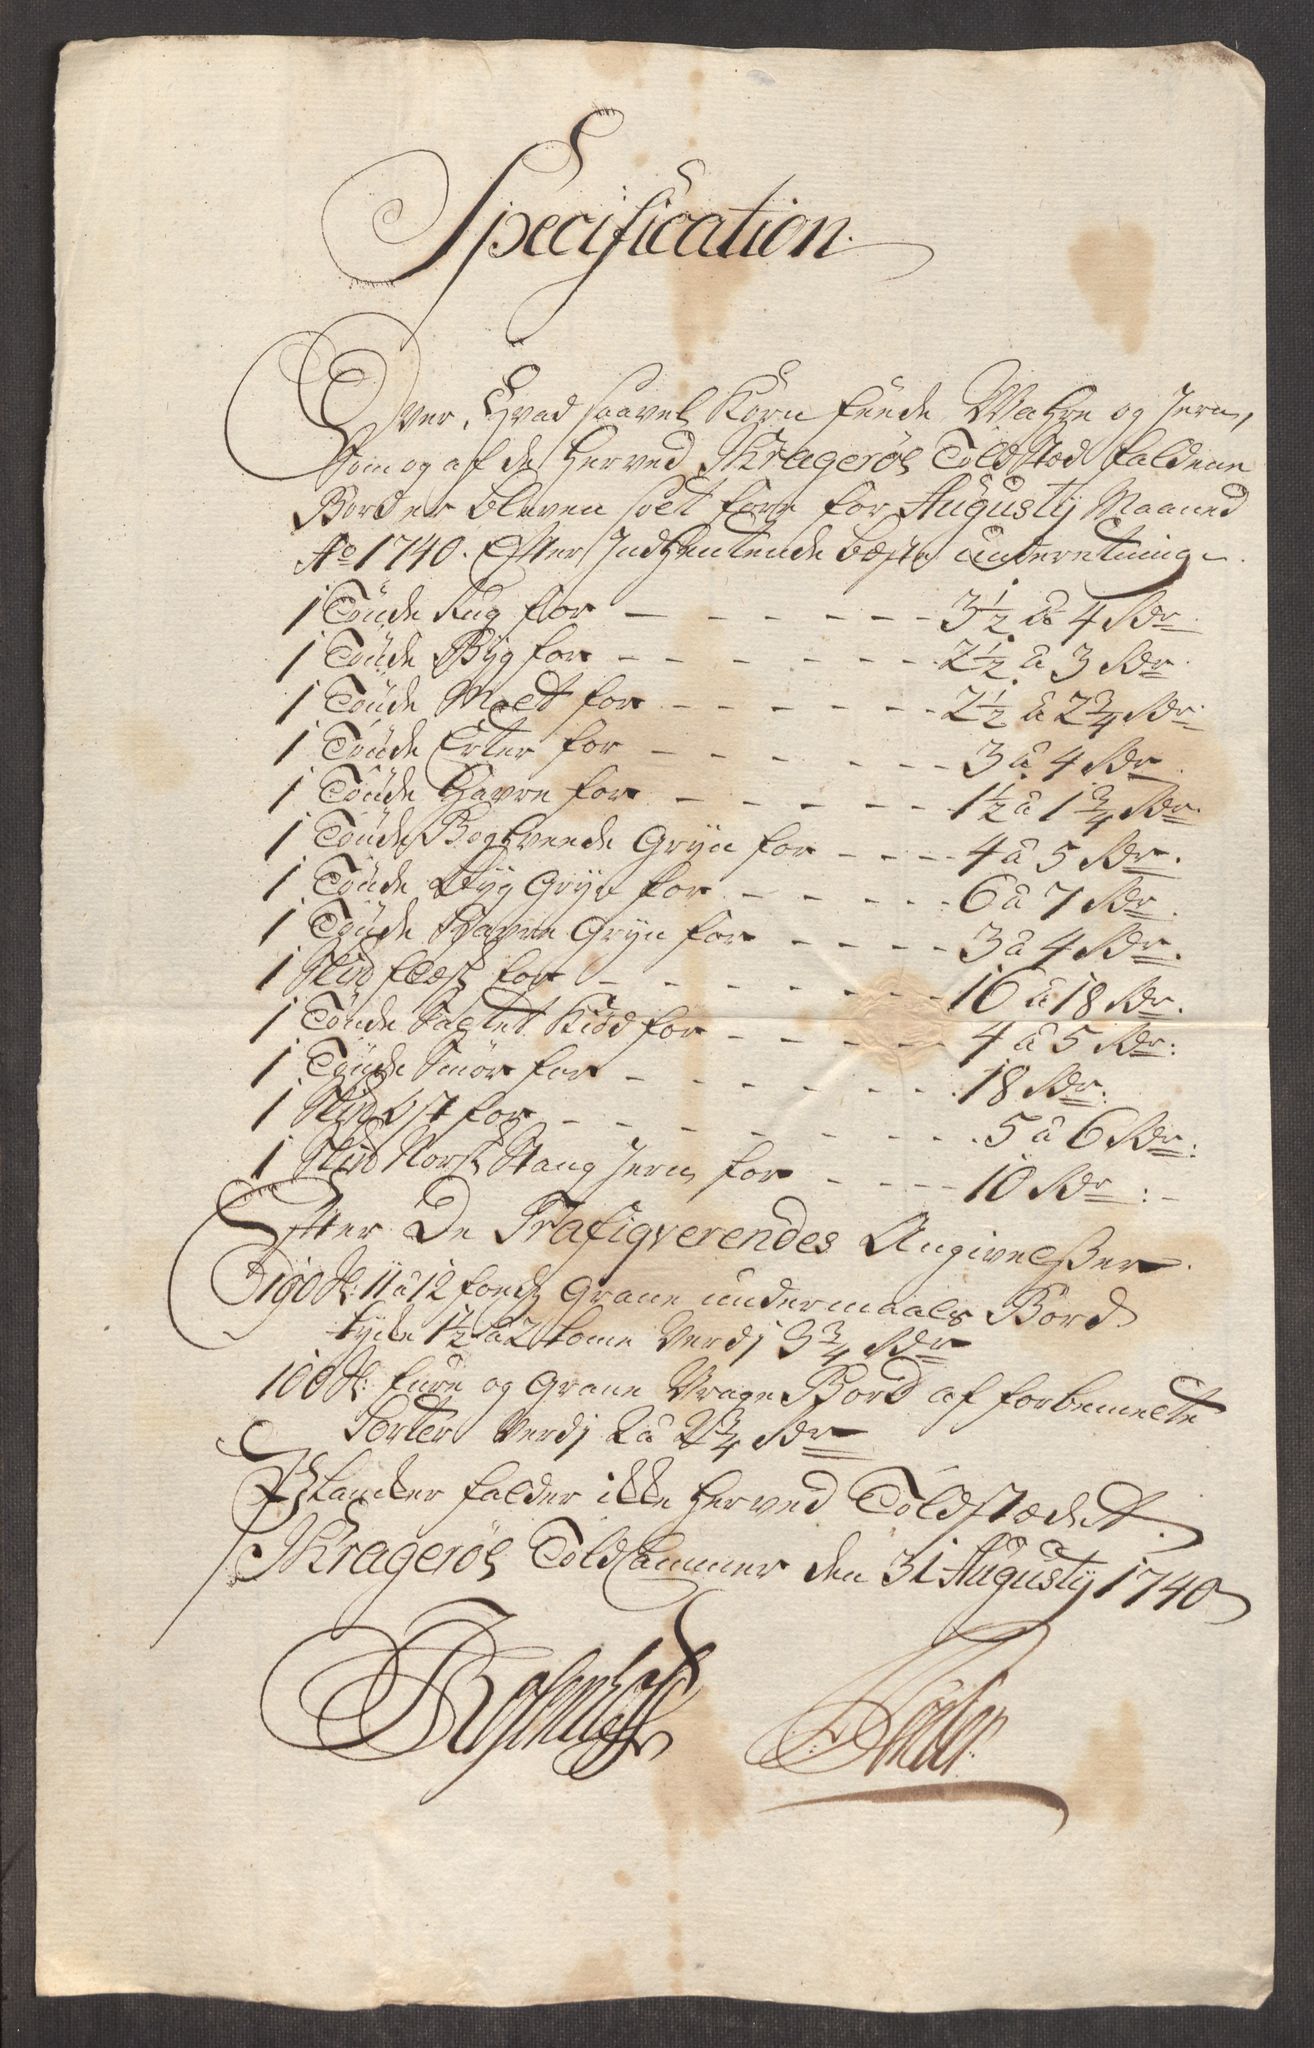 Specification.
Over, Hvad saavel Korn feede Wahre og Jern,
som og af de Herved Kragerøes Toldstæd faldene
Bord er bleven solt fore for Augustij Maaned
Ao 1740. Efter Indhentende bæste underetning
1 Tønde Rug for - - - - - 3½ â 4 Rdr
1 Tønde Byg for - - - - - 2½ â 3 Rdr
1 Tønde Malt for - - - - - 2½ â 2¾ Rdr
1 Tønde Erter for - - - - - 3 â 4 Rdr
1 Tønde Havre for - - - - - 1½ â 1¾ Rdr
1 Tønde Boghvede Gryn for - - - - 4 â 5 Rdr.
1 Tønde Byg Gryn for - - - - - 6 â 7 Rdr.
1 Tønde Havre Gryn for - - - - 3 â 4 Rdr.
1 Skpd flesk for - - - - - - 16 â 18 Rdr.
1 Tønde Saltet Kiød for - - - - - 4 â 5 Rdr:
1 Tønde Smør for - - - - - - 18 Rdr:
1 Skpd Ost for - - - - - - - 5 â 6 Rdr:
1 Skpd Norsk Stang Jern for - - - - 10 Rdr:
Efter De Trafiqverendes Angivelsser
100 st: 11 â 12 foeds Grane undermaals Bord
tycke 1½ â 2 tome Verdj 3¾ Rdr
100 st: fure og Grane Vrage Bord af forbemelte
Sorter Verdj 2 â 2¾ Rdr
Plancker falder ikke Herved Toldstædet.
Kragerøes Told Cammer den 31 Augustij 1740